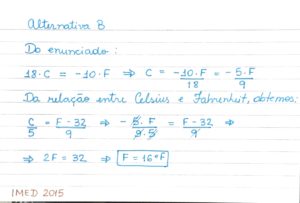 Alternativa B
Do enunciado:
18·C = -10·F ⇒ C = -10·F/18 = -5·F/9
Da relação entre Celsius e Fahrenheit, obtemos:
C/5 = F-32/9 ⇒ -5·F/9·5 = F-32/9 ⇒
⇒ 2F = 32 ⇒ F = 16°F
IMED 2015